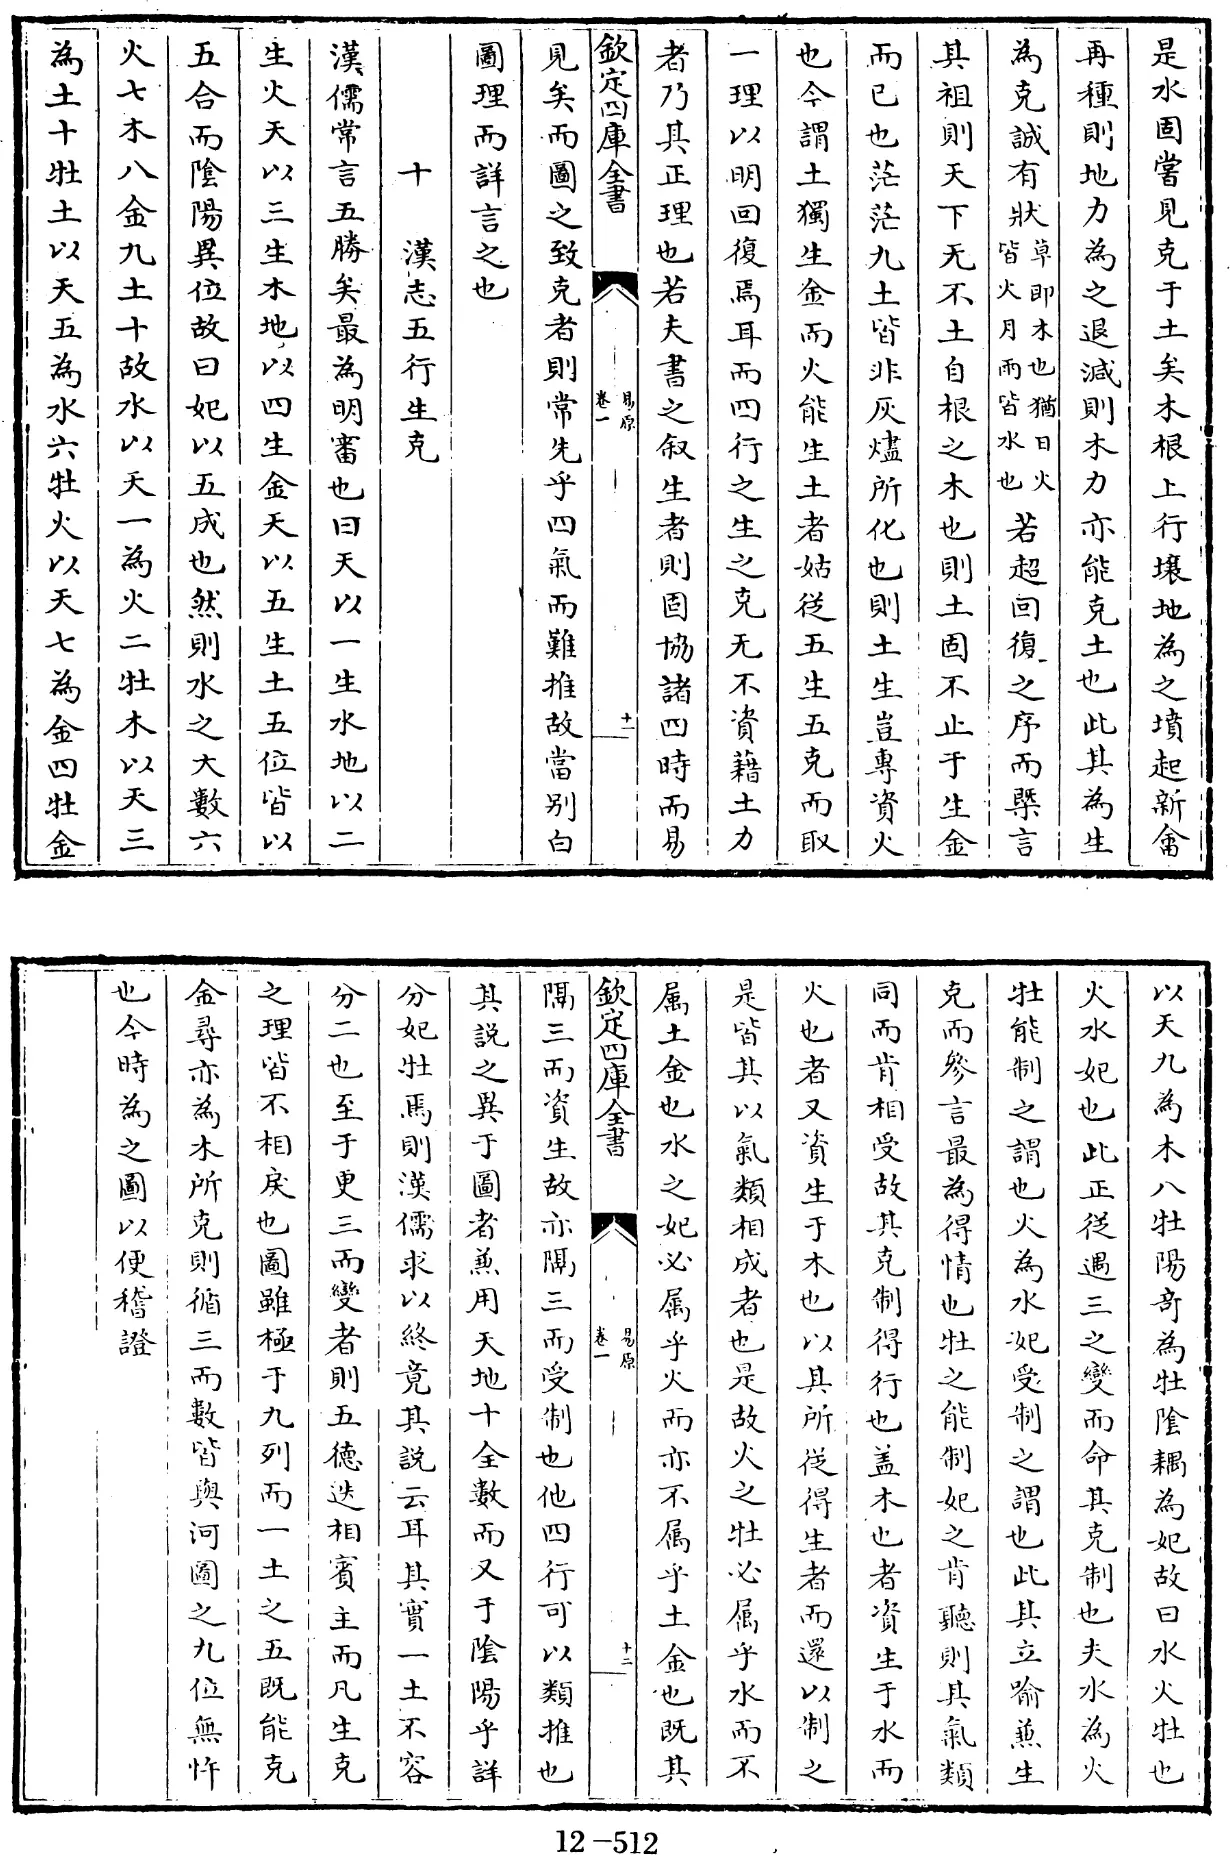 是水固嘗見克于土矣木根上行壤地為之墳起新畬
再種則地力為之退減則木力亦能克土也此其為生
為克誠有狀草即木也猶日火皆火月雨皆水也若超回復之序而槩言
其祖則天下无不土自根之木也則土固不止于生金
而已也茫茫九土皆非灰燼所化也則土生豈專資火
也今謂土獨生金而火能生土者姑從五生五克而取
一理以明回復焉耳而四行之生之克无不資藉土力
者乃其正理也若夫書之叙生者則固協諸四時而易
欽定四庫全書
易原
卷一
十一
見矣而圖之致克者則常先乎四氣而難推故當別白
圖理而詳言之也
十 漢志五行生克
漢儒常言五勝矣最為明審也曰天以一生水地以二
生火天以三生木地以四生金天以五生土五位皆以
五合而陰陽異位故曰妃以五成也然則水之大數六
火七木八金九土十故水以天一為火二牡木以天三
為土十牡土以天五為水六牡火以天七為金四牡金
以天九為木八牡陽奇為牡陰耦為妃故曰水火牡也
火水妃也此正從遇三之變而命其克制也夫水為火
牡能制之謂也火為水妃受制之謂也此其立喻蕪生
克而參言最為得情也牡之能制妃之肯聽則其氣類
同而肯相受故其克制得行也盖木也者資生于水而
火也者又資生于木也以其所從得生者而還以制之
是皆其以氣類相成者也是故火之牡必属乎水而不
属土金也水之妃必属乎火而亦不属乎土金也既其
欽定四庫全書
易原
卷一
十二
隔三而資生故亦隔三而受制也他四行可以類推也
其說之異于圖者蕪用天地十全數而又于陰陽乎詳
分妃牡焉則漢儒求以終竟其說云耳其實一土不容
分二也至于更三而變者則五德迭相賓主而凡生克
之理皆不相戾也圖雖極于九列而一土之五既能克
金尋亦為木所克則循三而數皆與河圖之九位無忤
也今時為之圖以便稽證
12-512